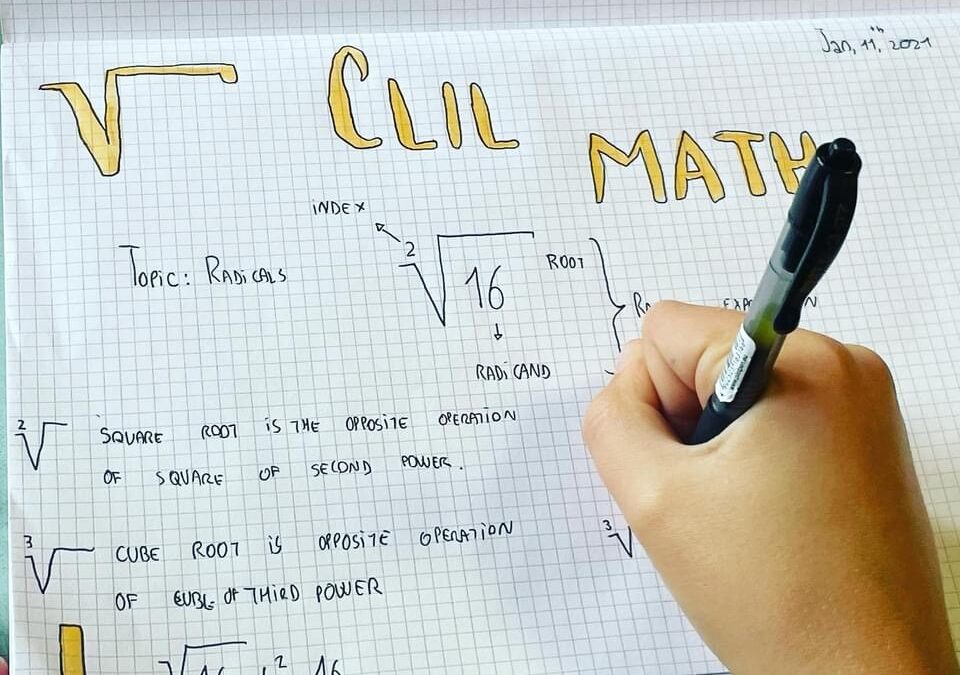 Jan, 11th, 2021
√ CLIL
MATH
INDEX
Topic: RADICALS
2√16
ROOT
RADICAND
2√ SQUARE ROOT IS THE OPPOSITE OPERATION
OF SQUARE OF SECOND POWER.
3√ CUBE ROOT IS OPPOSITE OPERATION
OF CUBE OF THIRD POWER
3√